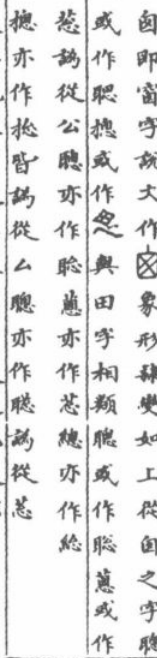 囱即窗字說文作囪象形隸變如上從囱之字聰
或作聦摠或作㥖與田字相類聰或作聡蔥或作
葱譌從公聰亦作聡蔥亦作葱總亦作総
摠亦作捴皆譌從厶聰亦作聦譌從忩